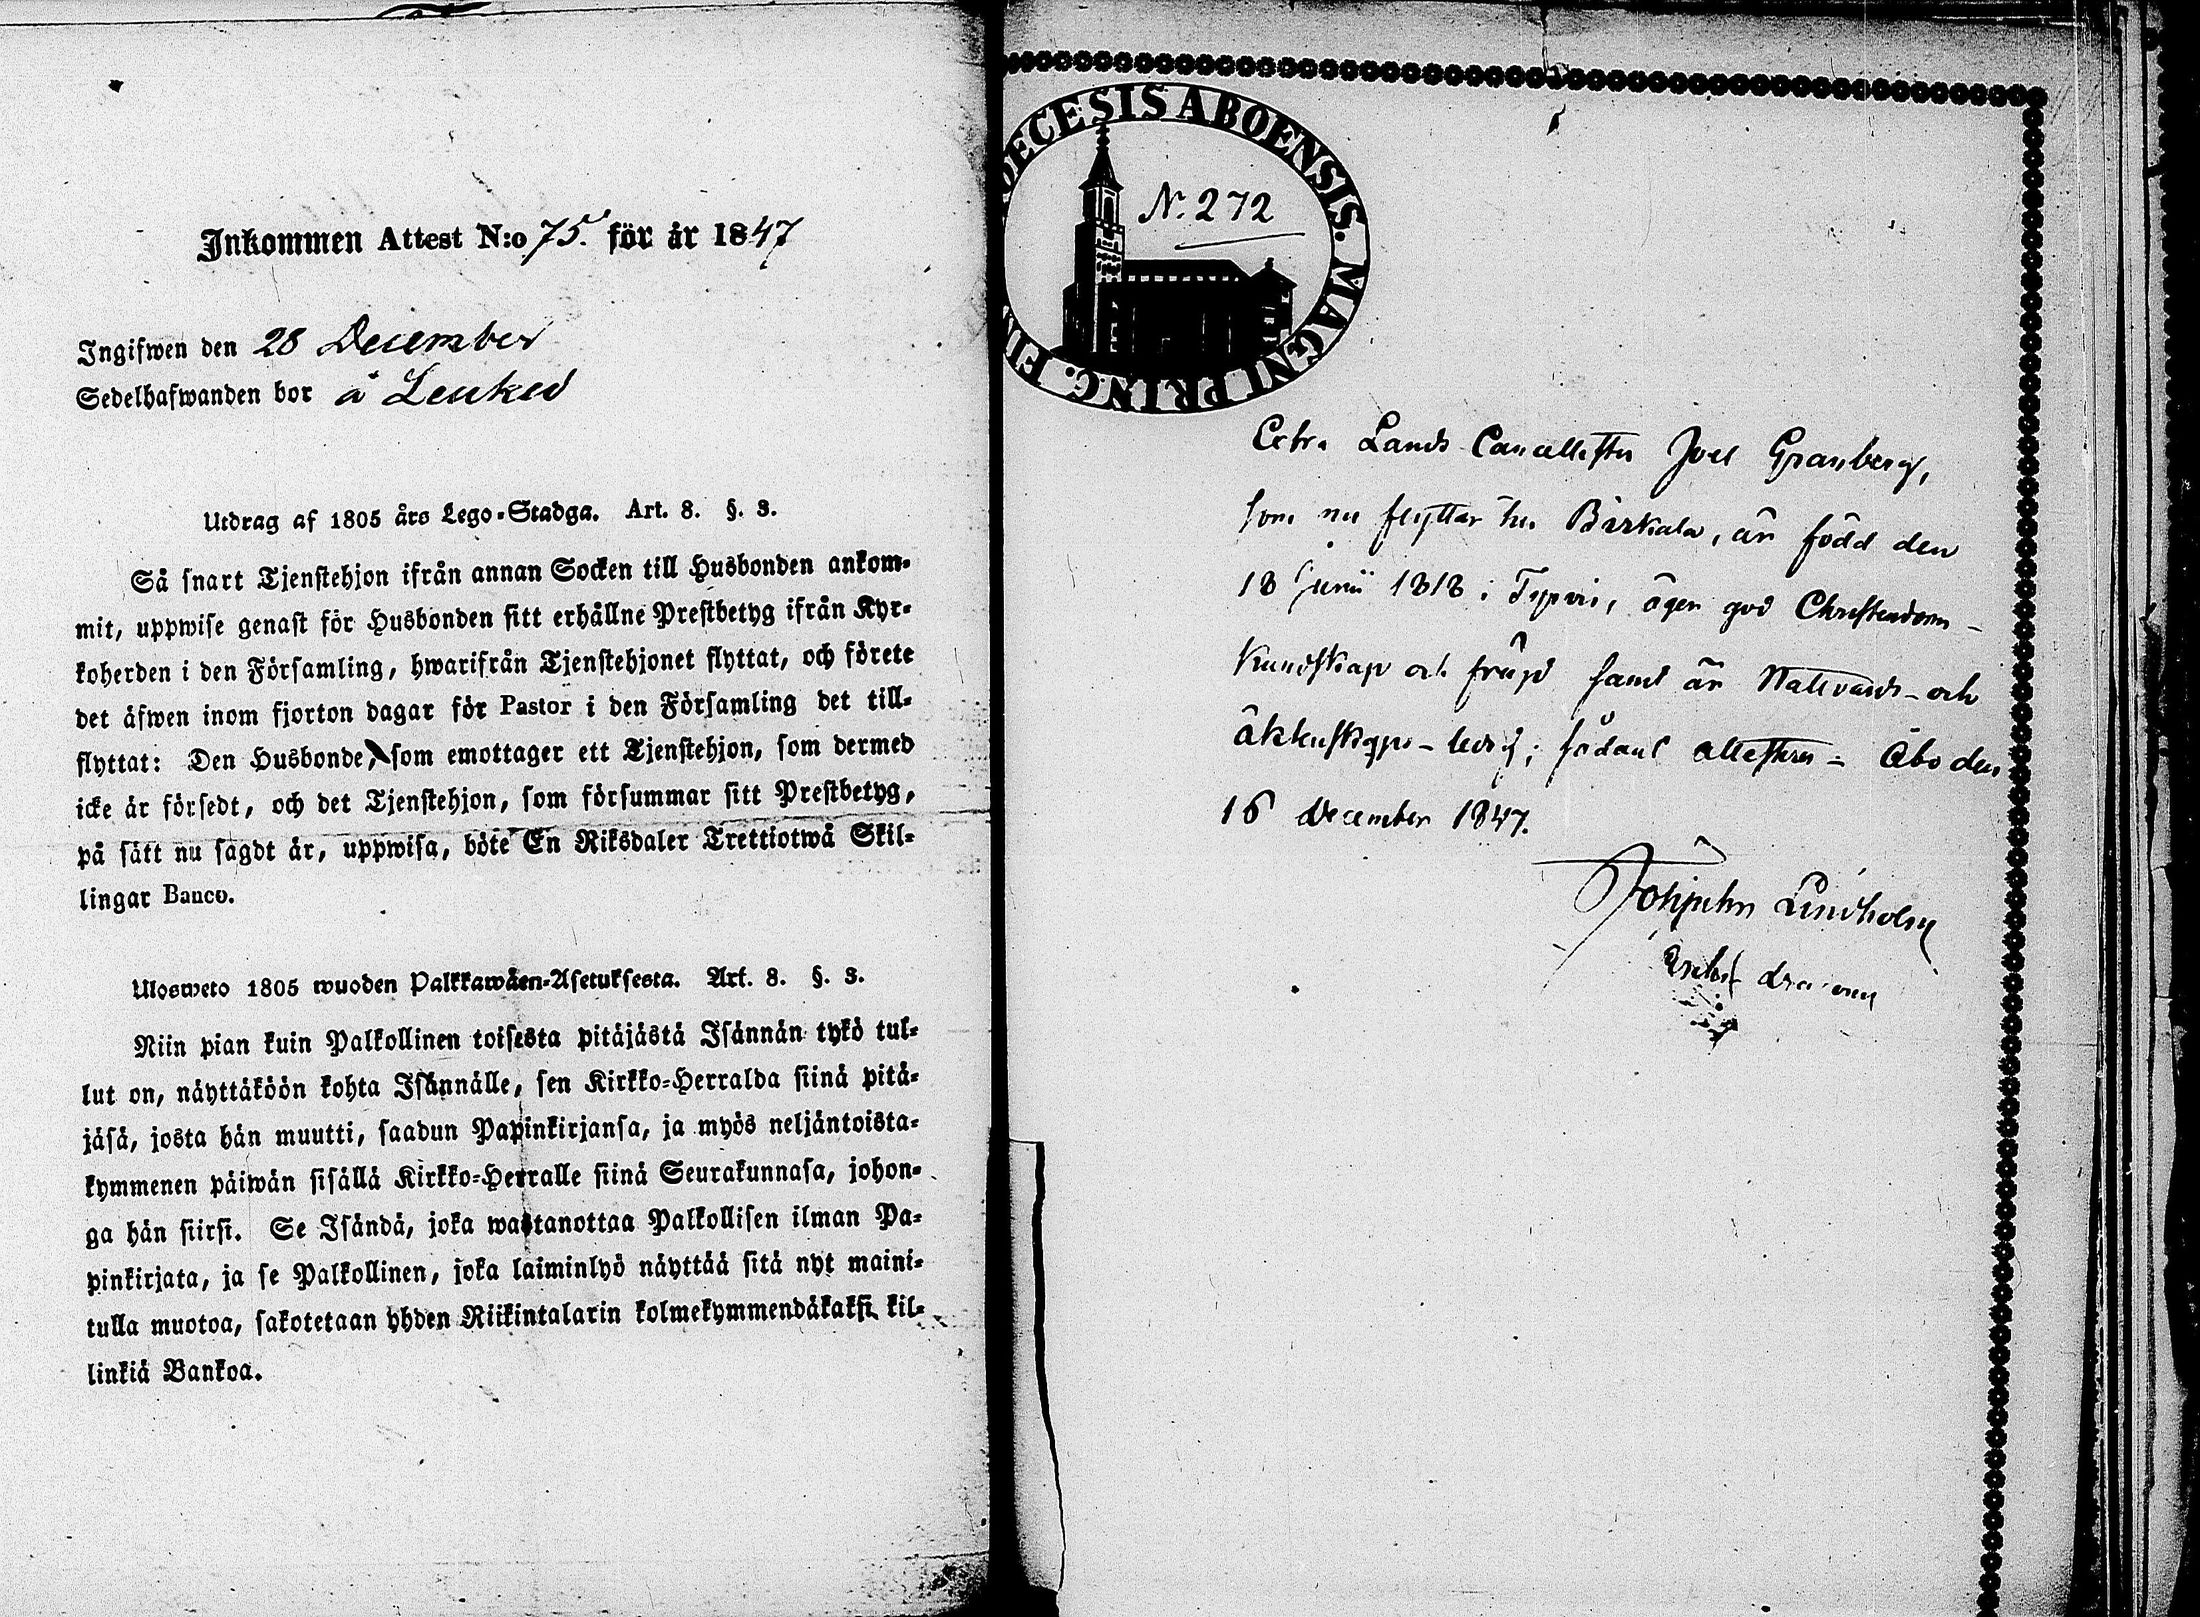 Inkommen Attest N:o 75. för år 1847
Ingifwen den 28 December
Sedelhafwanden bor å Leuked
Utdrag af 1805 års Lego-Stadga. Art. 8. §. 3.
Så snart Tjenstehjon ifrån annan Socken till Husbonden ankom-
mit, uppwise genast för Husbonden sitt erhållne Prestbetyg ifrån Kyr-
koherden i den Församling, hwarifrån Tjenstehjonet flyttat, och förete
det äfwen inom fjorton dagar för Pastor i den Församling det till-
flyttat: Den Husbonde, som emottager ett Tjenstehjon, som dermed
icke är försedt, och det Tjenstehjon, som försummar sitt Prestbetyg,
på sätt nu sagdt är, uppwisa, böte En Riksdaler Trettiotwå Skil-
lingar Banco.
Ulosweto 1805 wuoden Palkkawäen-Asetuksesta. Art. 8. §. 3.
Niin pian kuin Palkollinen toisesta pitäjästä Isännän tykö tul-
lut on, näyttäköön kohta Isännälle, sen Kirkko-Herralda siinä pitä-
jäsä, josta hän muutti, saadun Papinkirjansa, ja myös neljäntoista-
kymmenen päiwän sisällä Kirkko-Herralle siinä Seurakunnasa, johon-
ga hän siirsi. Se Isändä, joka wastanottaa Palkollisen ilman Pa-
pinkirjata, ja se Palkollinen, joka laiminlyö näyttää sitä nyt maini-
tulla muotoa, sakotetaan yhden Riikintalarin kolmekymmendäkaksi kil-
linkiä Bankoa.
DIOECESIS ABOENSIS. MAGNI PRINC. FIN
N. 272
Extra Lands Cancellisten Joel Granberg,
som nu flyttar till Birkala, är född den
18 Junii 1818 i Typvis, äger god Christendoms-
kundskap och frejd samt är Nattvards- och
äktenskaps-ledig; sådant attesteras - Åbo den
16 December 1847.
Lindholm